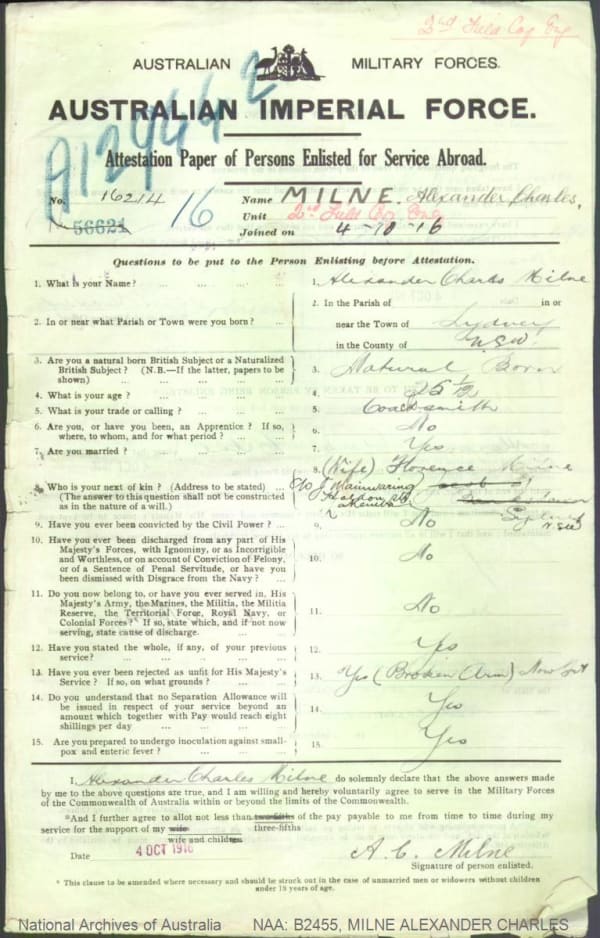 2nd Field Coy Eng
AUSTRALIAN MILITARY FORCES.
AUSTRALIAN IMPERIAL FORCE.
A12944 2
Attestation Paper of Persons Enlisted for Service Abroad.
No. 16214 16 Name MILNE. Alexander Charles.
56621 Unit 2nd Field Coy Eng
Joined on 4-10-16
Questions to be put to the Person Enlisting before Attestation.
1. What is your Name? ... ... ... ... 1. Alexander Charles Milne
2. In or near what Parish or Town were you born? ... 2. In the Parish of in or
near the Town of Sydney
in the County of N.S.W.
3. Are you a natural born British Subject or a Naturalized
British Subject? (N.B.—If the latter, papers to be
shown) ... ... ... ... ... 3. Natural Born
4. What is your age? ... ... ... ... 4. 25
5. What is your trade or calling? ... ... ... 5. Coachsmith
6. Are you, or have you been, an Apprentice? If so,
where, to whom, and for what period? ... ... 6. No
7. Are you married? ... ... ... ... 7. Yes
8. Who is your next of kin? (Address to be stated) ...
(The answer to this question shall not be constructed
as in the nature of a will.) 8. (Wife) Florence Milne
c/o J Mainwaring
Lakemba
Sydney
N.S.W
9. Have you ever been convicted by the Civil Power? ... 9. No
10. Have you ever been discharged from any part of His
Majesty's Forces, with Ignominy, or as Incorrigible
and Worthless, or on account of Conviction of Felony,
or of a Sentence of Penal Servitude, or have you
been dismissed with Disgrace from the Navy? ... 10. No
11. Do you now belong to, or have you ever served in, His
Majesty's Army, the Marines, the Militia, the Militia
Reserve, the Territorial Force, Royal Navy, or
Colonial Forces? If so, state which, and if not now
serving, state cause of discharge. ... ... 11. No
12. Have you stated the whole, if any, of your previous
service? ... ... ... ... ... 12. Yes
13. Have you ever been rejected as unfit for His Majesty's
Service? If so, on what grounds? ... ... 13. Yes (Broken Arm) Now
14. Do you understand that no Separation Allowance will
be issued in respect of your service beyond an
amount which together with Pay would reach eight
shillings per day ... ... ... ... 14. Yes
15. Are you prepared to undergo inoculation against small-
pox and enteric fever? ... ... ... 15. Yes
I, Alexander Charles Milne do solemnly declare that the above answers made
by me to the above questions are true, and I am willing and hereby voluntarily agree to serve in the Military Forces
of the Commonwealth of Australia within or beyond the limits of the Commonwealth.
*And I further agree to allot not less than two-fifths of the pay payable to me from time to time during my
three-fifths
service for the support of my wife
wife and children
Date 4 OCT 1916 A. C. Milne
Signature of person enlisted.
* This clause to be amended where necessary and should be struck out in the case of unmarried men or widowers without children
under 18 years of age.
National Archives of Australia NAA: B2455, MILNE ALEXANDER CHARLES